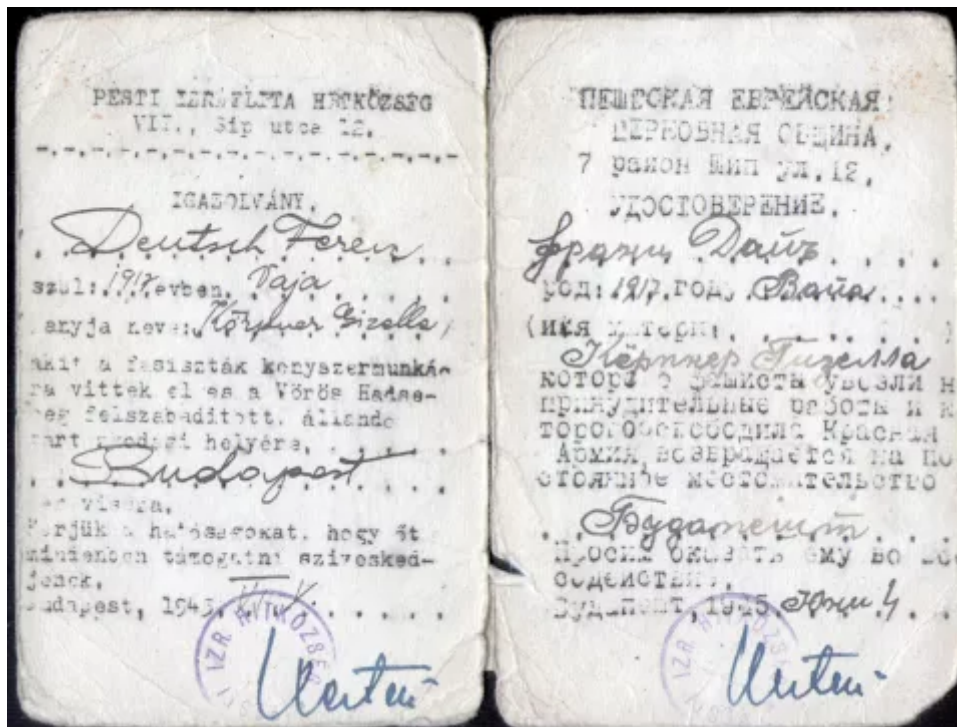 PESTI IZRAELITA HITKÖZSÉG
VII., Síp utca 12.
IGAZOLVÁNY.
Deutsch Ferenc
szül: 1917. évben. Vaja
anyja neve: Körpner Gizella)
akit a fasiszták kényszermunká-
ra vittek el és a Vörös Hadse-
reg felszabadított, állandó
tart helyére,
Budapest
vissza.
Kérjük a hatóságokat, hogy őt
mindenben támogatni szivesked-
jenek.
Budapest, 1945.
IZR. HITKÖZSÉG
ПЕШТСКАЯ ЕВРЕЙСКАЯ
ЦЕРКОВНАЯ ОБЩИНА.
7 район Шип ул. 12.
УДОСТОВЕРЕНИЕ.
Франц Дайч
род: 1917. году. Вайа
(имя матери:
Кёрпнер Гизелла
которого фашисты увезли н
принудительные работы и к
торого освободила Красная
Армия, возвращается на по
стоянное местожительство
Будапешт
Просим оказать ему во все
содействия.
Будапешт, 1945.
IZR. HITKÖZSÉG